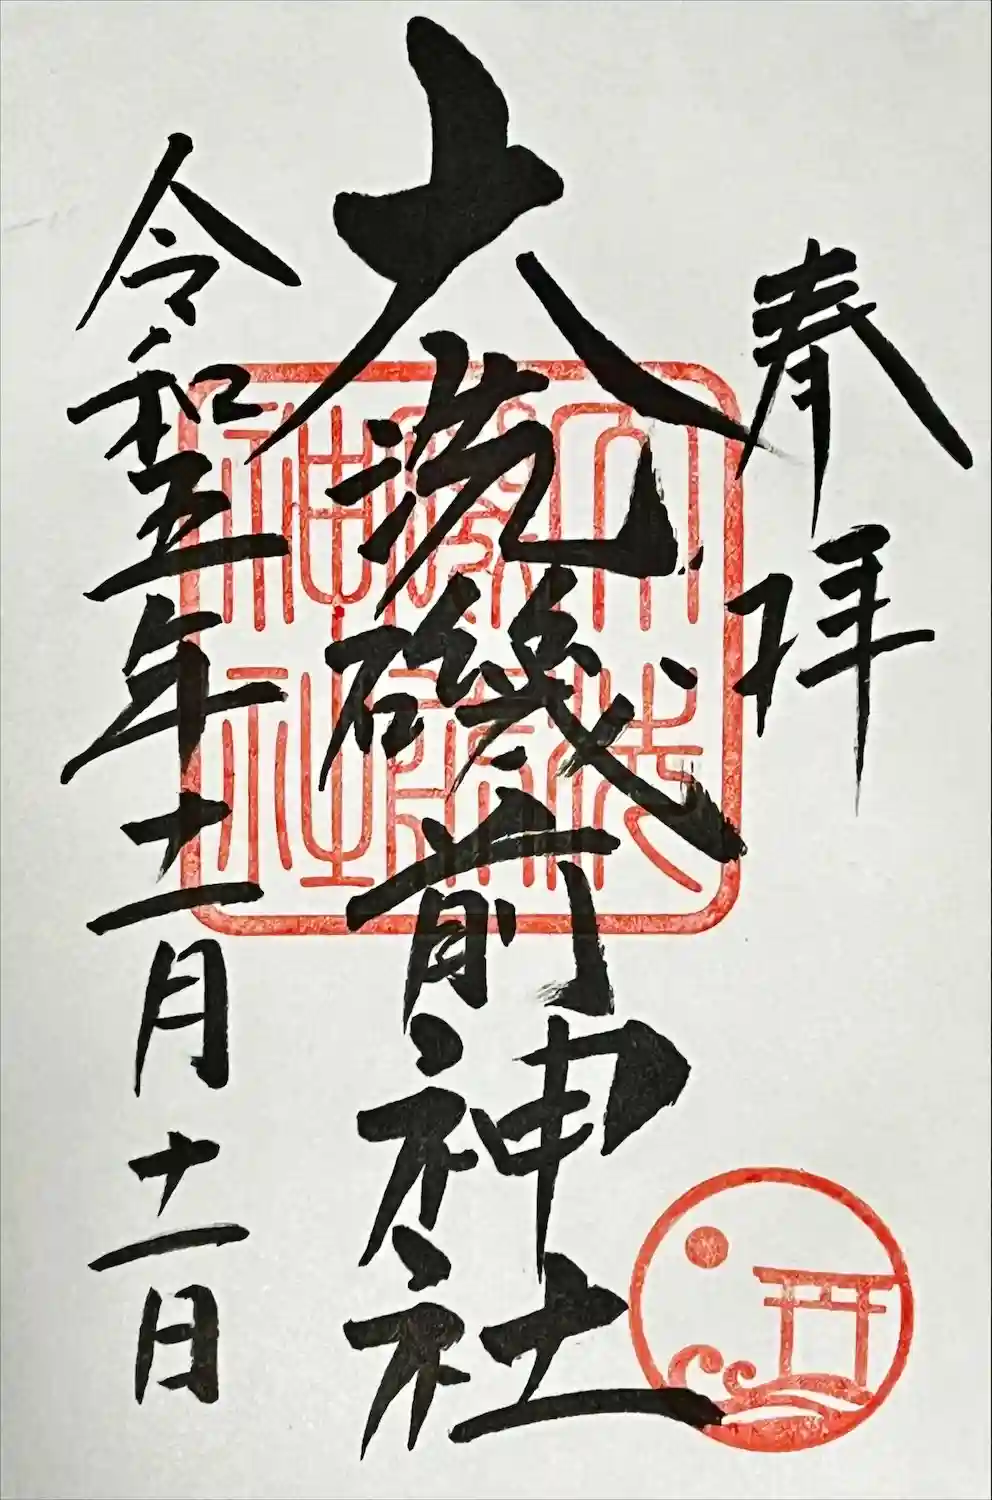 奉拝
大洗磯前神社
令和五年十二月十二日
大洗
磯前
神社